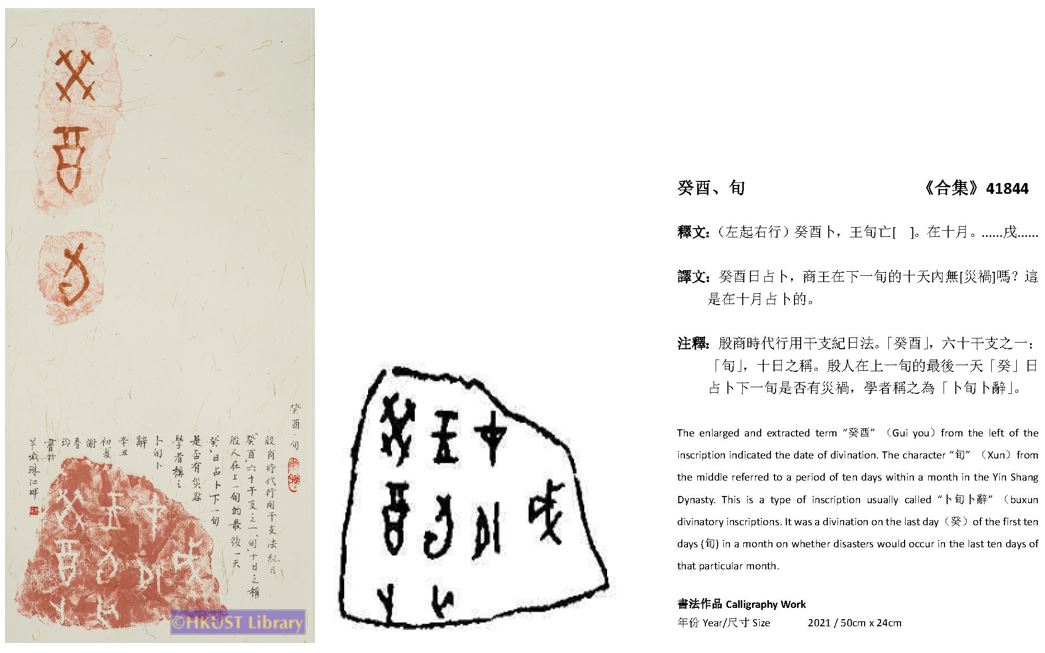 癸
酉
旬
癸酉 旬
殷商時代行用干支法紀日
癸酉六十干支之一旬十日之稱
殷人在上一旬的最後一天
癸日占卜下一旬
是否有災咎
學者稱之
卜旬卜
辭
辛丑
初夏
書於
珠江畔
©HKUST Library
癸酉、旬 《合集》41844
釋文:（左起右行）癸酉卜，王旬亡[ ]。在十月。……戌……
譯文：癸酉日占卜，商王在下一旬的十天內無[災禍]嗎？這
是在十月占卜的。
注釋：殷商時代行用干支紀日法。「癸酉」，六十干支之一；
「旬」，十日之稱。殷人在上一旬的最後一天「癸」日
占卜下一旬是否有災禍，學者稱之為「卜旬卜辭」。
The enlarged and extracted term “癸酉” （Gui you）from the left of the
inscription indicated the date of divination. The character “旬” （Xun）from
the middle referred to a period of ten days within a month in the Yin Shang
Dynasty. This is a type of inscription usually called “卜旬卜辭” （buxun
divinatory inscriptions. It was a divination on the last day（癸）of the first ten
days (旬) in a month on whether disasters would occur in the last ten days of
that particular month.
書法作品 Calligraphy Work
年份 Year/尺寸 Size 2021 / 50cm x 24cm